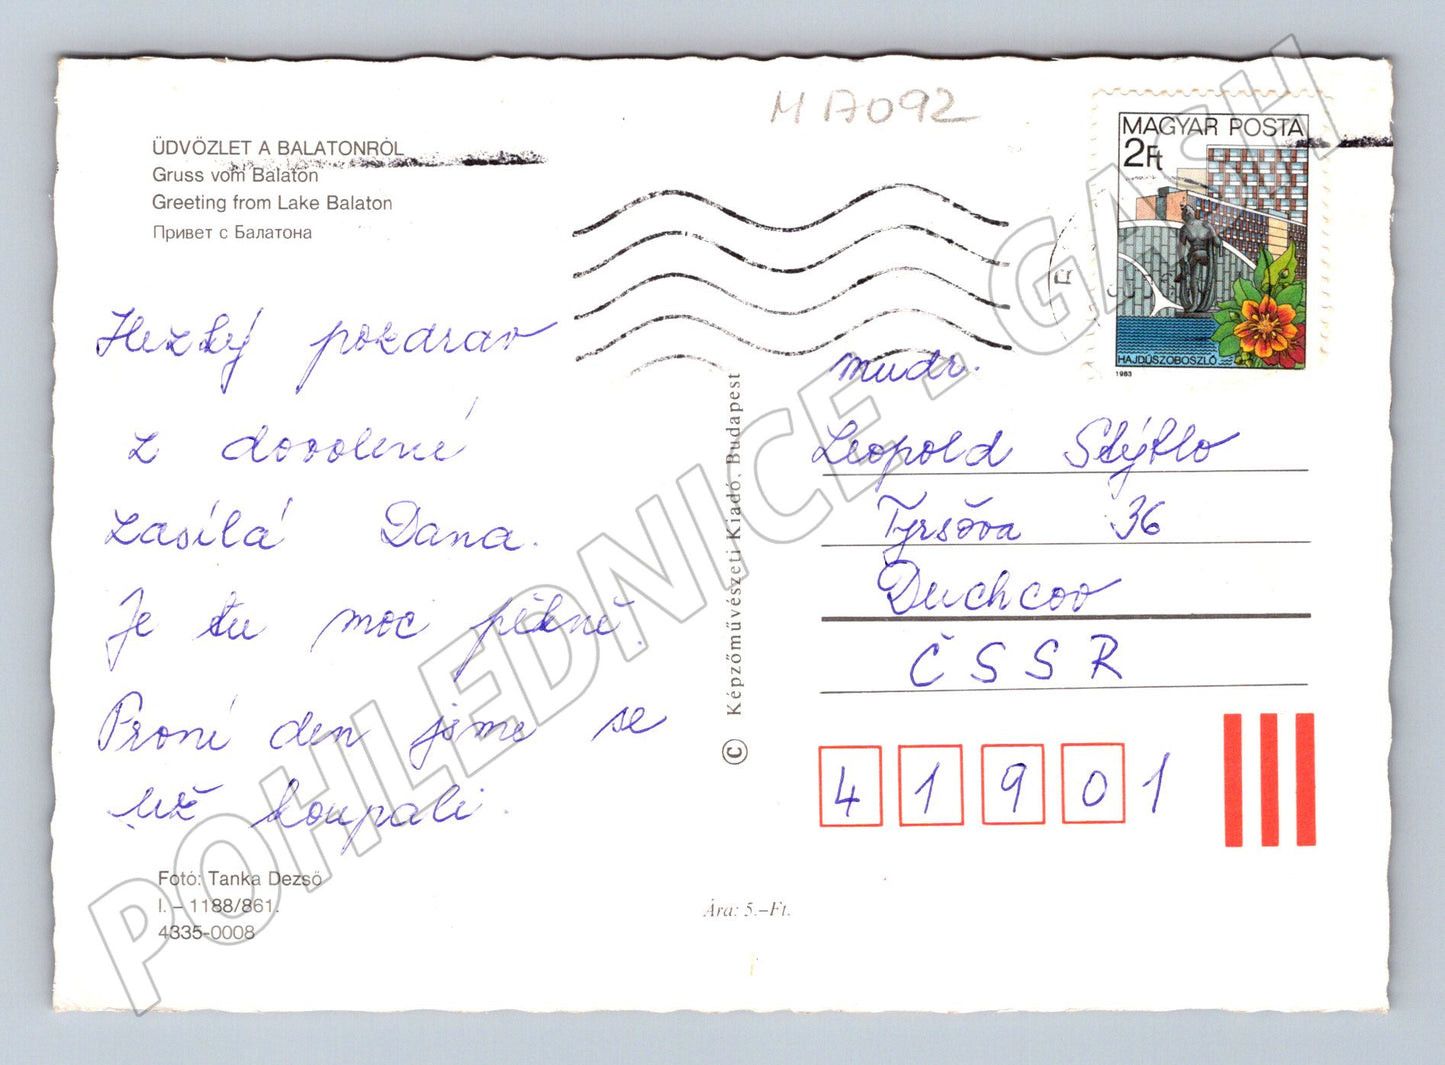 M A092
MAGYAR POSTA
2Ft
HAJDÚSZOBOSZLÓ
1983
ÜDVÖZLET A BALATONRÓL
Gruss vom Balaton
Greeting from Lake Balaton
Привет с Балатона
Hezký pozdrav
z dovolené
zasílá Dana.
Je tu moc pěkně.
První den jsme se
už koupali.
Fotó: Tanka Dezső
I. – 1188/861.
4335-0008
© Képzőművészeti Kiadó, Budapest
Ára: 5.–Ft.
mudr.
Leopold Stýblo
Tyršova 36
Duchcov
ČSSR
41901
POHLEDNICE - GASH